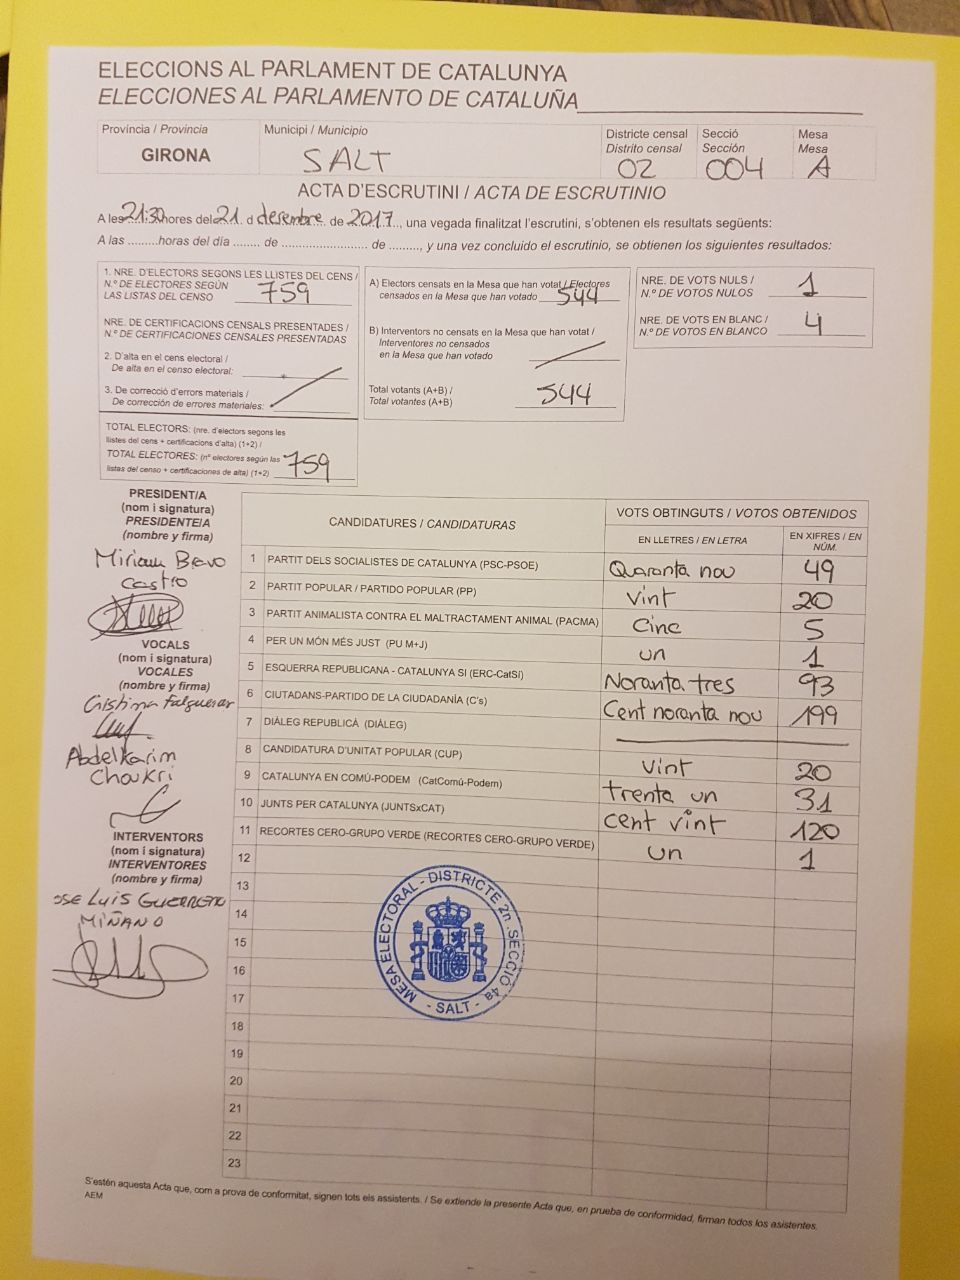 ELECCIONS AL PARLAMENT DE CATALUNYA
ELECCIONES AL PARLAMENTO DE CATALUÑA
Província / Provincia
GIRONA
Municipi / Municipio
SALT
Districte censal
Distrito censal
02
Secció
Sección
004
Mesa
Mesa
A
ACTA D'ESCRUTINI / ACTA DE ESCRUTINIO
A les 21:30 hores del 21. d desembre de 2017, una vegada finalitzat l'escrutini, s'obtenen els resultats següents:
A las .........horas del día ........ de .......................... de ........., y una vez concluido el escrutinio, se obtienen los siguientes resultados:
1. NRE. D'ELECTORS SEGONS LES LLISTES DEL CENS /
N.º DE ELECTORES SEGÚN
LAS LISTAS DEL CENSO 759
NRE. DE CERTIFICACIONS CENSALS PRESENTADES /
N.º DE CERTIFICACIONES CENSALES PRESENTADAS
2. D'alta en el cens electoral /
De alta en el censo electoral:
3. De correcció d'errors materials /
De corrección de errores materiales:
TOTAL ELECTORS: (nre. d'electors segons les
llistes del cens + certificacions d'alta) (1+2) /
TOTAL ELECTORES: (nº electores según las
listas del censo + certificaciones de alta) (1+2) 759
A) Electors censats en la Mesa que han votat / Electores
censados en la Mesa que han votado 544
B) Interventors no censats en la Mesa que han votat /
Interventores no censados
en la Mesa que han votado
Total votants (A+B) /
Total votantes (A+B) 544
NRE. DE VOTS NULS /
N.º DE VOTOS NULOS 1
NRE. DE VOTS EN BLANC /
N.º DE VOTOS EN BLANCO 4
PRESIDENT/A
(nom i signatura)
PRESIDENTE/A
(nombre y firma)
Miriam Bravo
Castro
VOCALS
(nom i signatura)
VOCALES
(nombre y firma)
Cristina Falgueras
Abdelkarim
Choukri
INTERVENTORS
(nom i signatura)
INTERVENTORES
(nombre y firma)
JOSE LUIS GUERRERO
MIÑANO
CANDIDATURES / CANDIDATURAS
VOTS OBTINGUTS / VOTOS OBTENIDOS
EN LLETRES / EN LETRA
EN XIFRES / EN
NÚM.
1 PARTIT DELS SOCIALISTES DE CATALUNYA (PSC-PSOE) Quaranta nou 49
2 PARTIT POPULAR / PARTIDO POPULAR (PP) Vint 20
3 PARTIT ANIMALISTA CONTRA EL MALTRACTAMENT ANIMAL (PACMA) Cinc 5
4 PER UN MÓN MÉS JUST (PU M+J) un 1
5 ESQUERRA REPUBLICANA - CATALUNYA SÍ (ERC-CatSí) Noranta tres 93
6 CIUTADANS-PARTIDO DE LA CIUDADANÍA (C's) Cent noranta nou 199
7 DIÀLEG REPUBLICÀ (DIÀLEG)
8 CANDIDATURA D'UNITAT POPULAR (CUP) Vint 20
9 CATALUNYA EN COMÚ-PODEM (CatComú-Podem) trenta un 31
10 JUNTS PER CATALUNYA (JUNTSxCAT) cent vint 120
11 RECORTES CERO-GRUPO VERDE (RECORTES CERO-GRUPO VERDE) un 1
12
13
14
15
16
17
18
19
20
21
22
23
MESA ELECTORAL - DISTRICTE 2n. SECCIÓ 4a - SALT -
S'estén aquesta Acta que, com a prova de conformitat, signen tots els assistents. / Se extiende la presente Acta que, en prueba de conformidad, firman todos los asistentes.
AEM